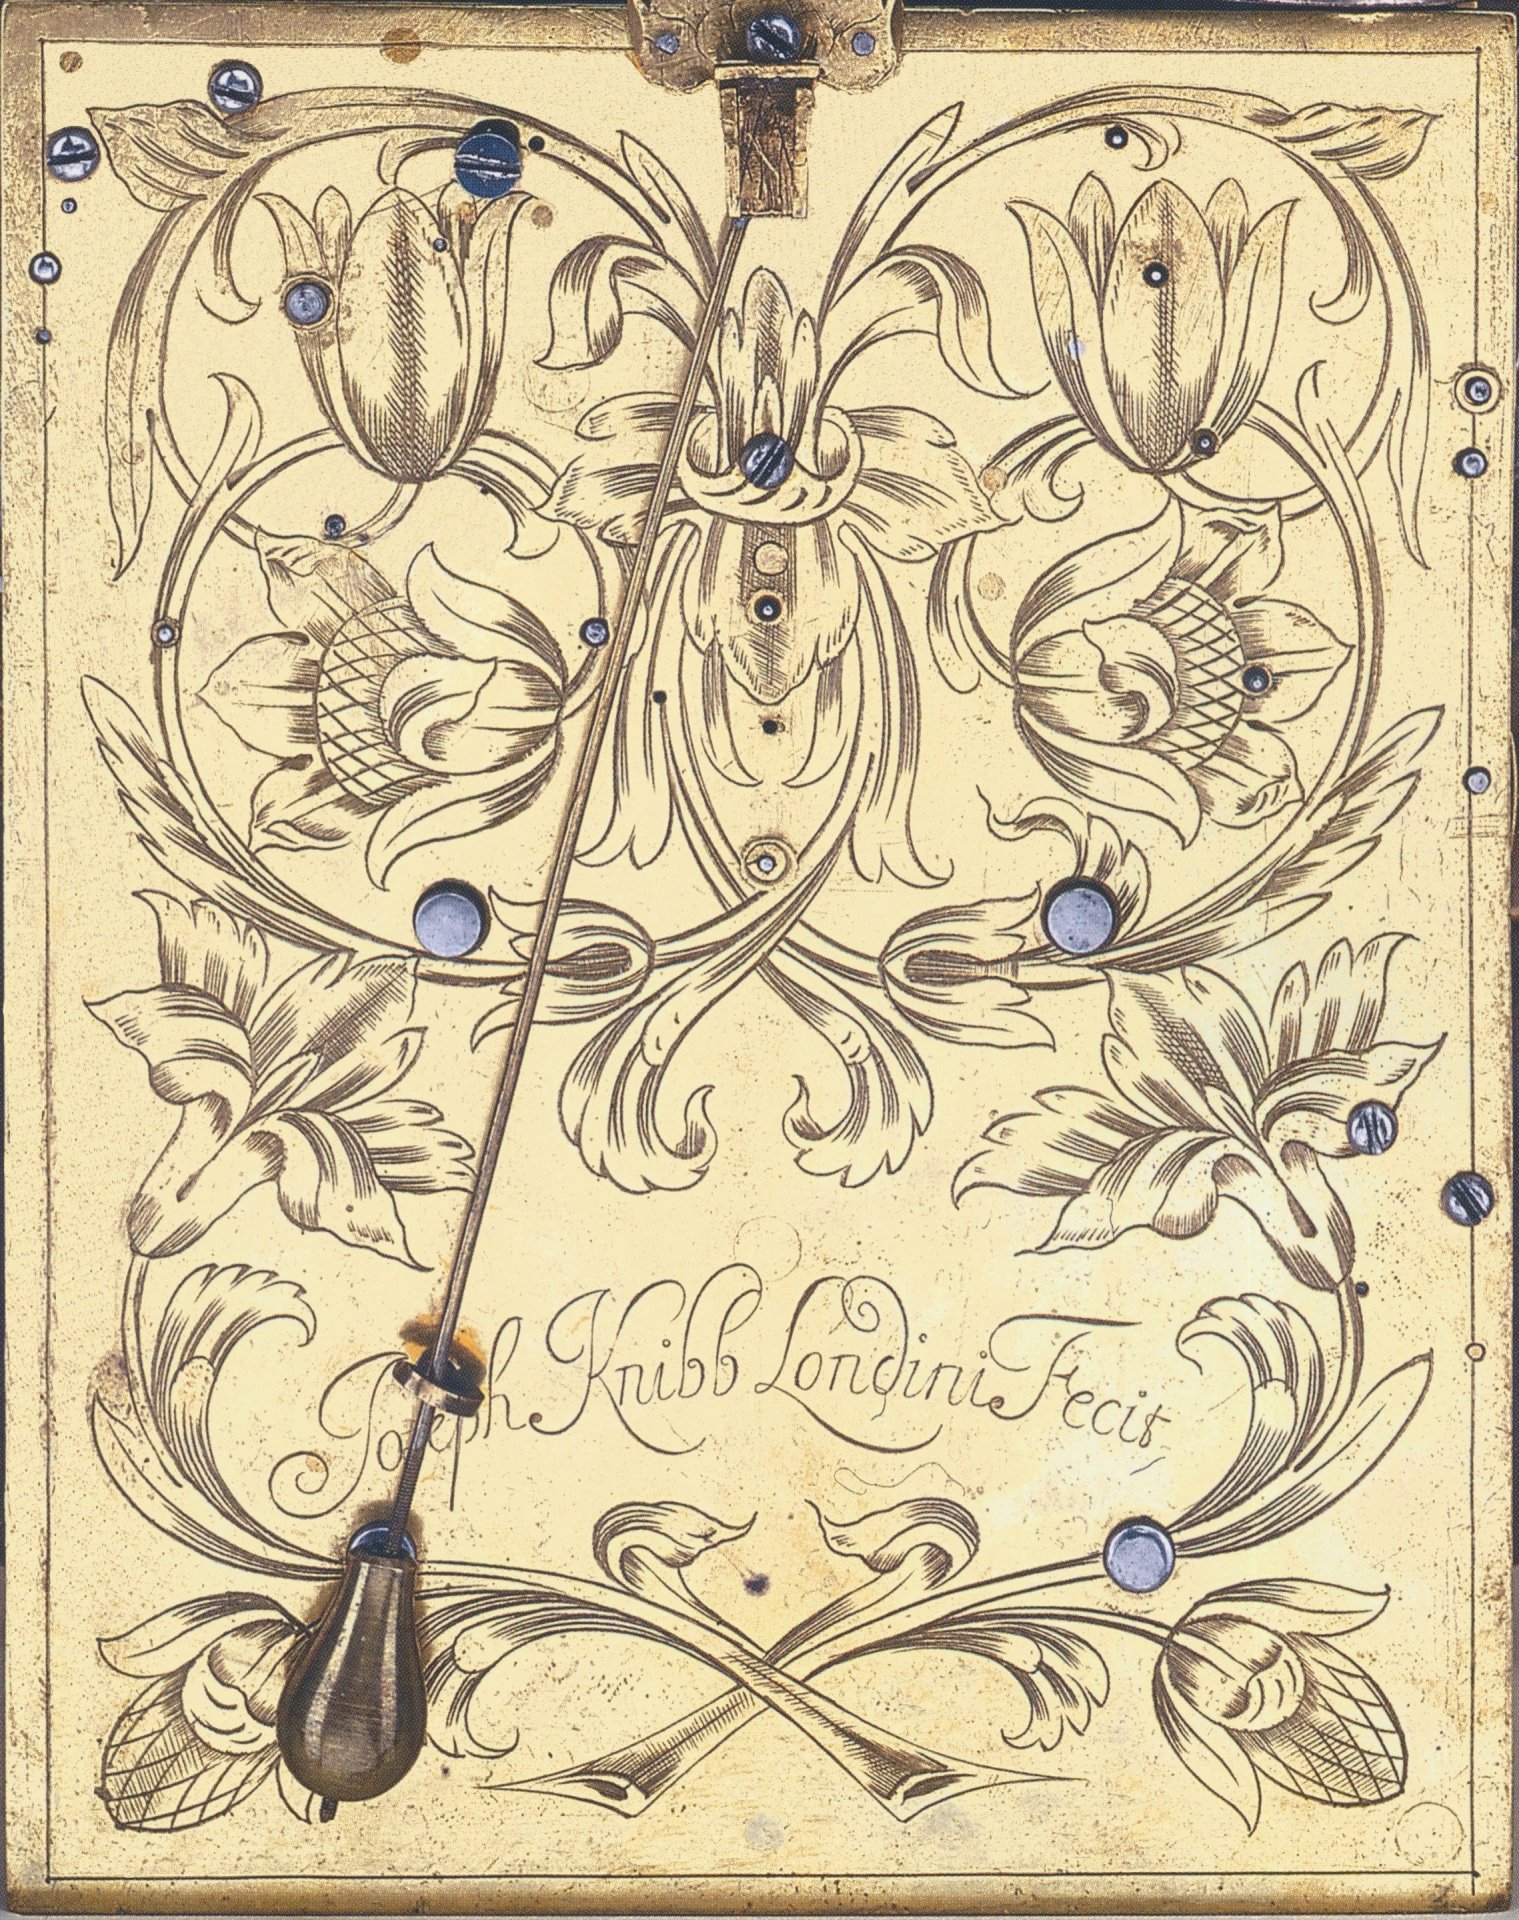 Joseph Knibb Londini Fecit